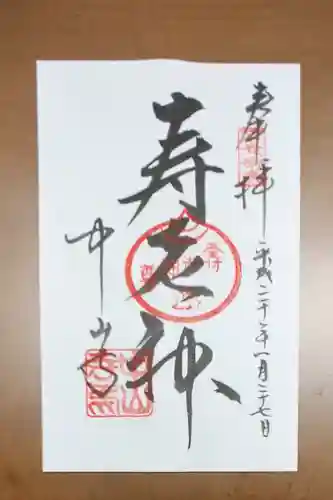 奉拝
平成二十二年一月二十七日
寿老神
中山寺